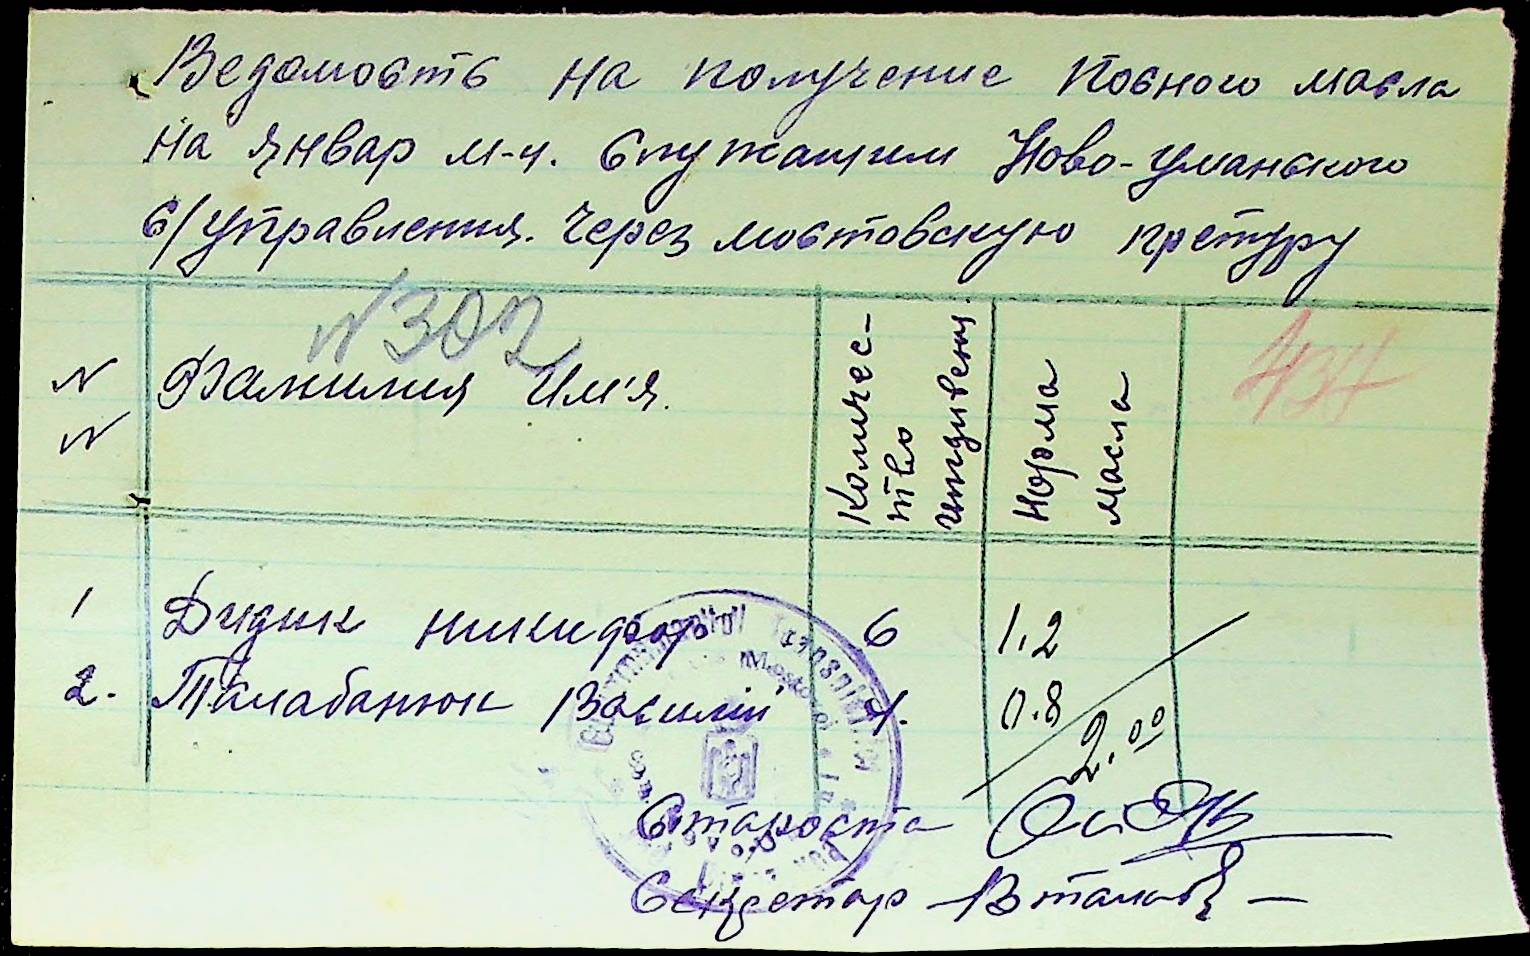 Ведомость на получение посного масла
на январ м-ц. служащим Ново-Уманського
с/управления. через мостовскую претуру
N302
N
N
Фамилия Им'я.
Количес-
тво
Норма
масла
1 Дидык Никифор 6 1.2
2. Талабанюк Василий 4. 0.8
2.00
Староста
Секретар